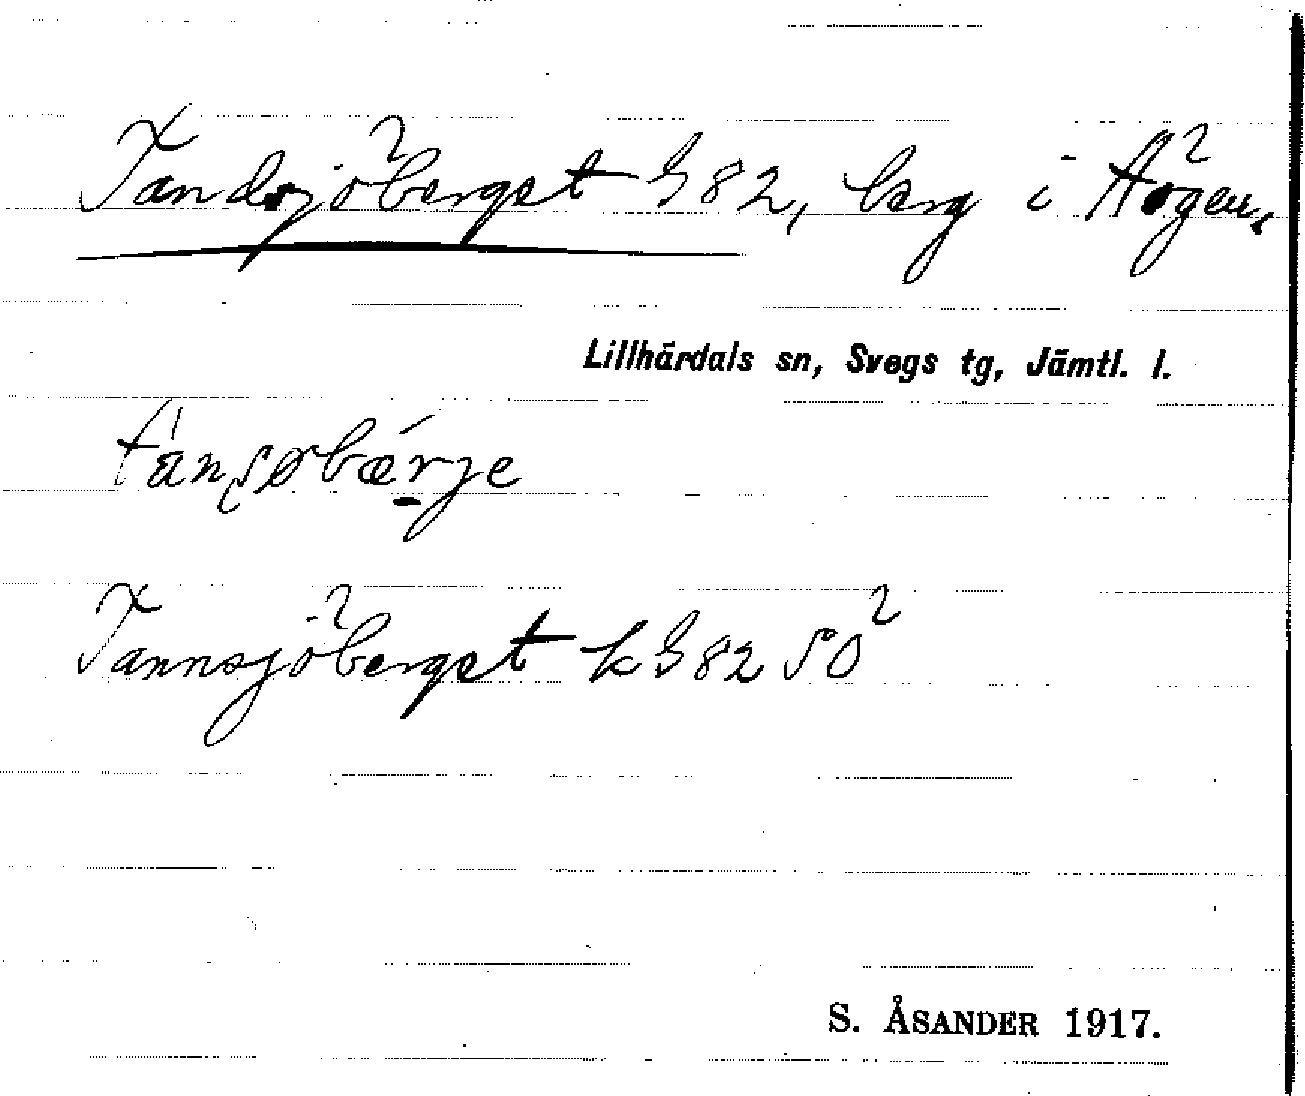 Tandsjöberget G 82, berg i Ängen.
Lillhärdals sn, Svegs tg, Jämtl. l.
Tannsjöberget k G 82 SO
S. ÅSANDER 1917.